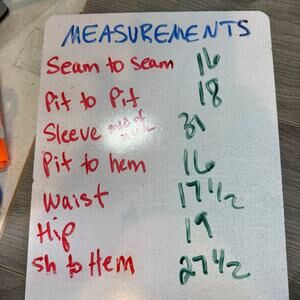 MEASUREMENTS
Seam to seam 16
Pit to Pit 18
Sleeve 31
Pit to hem 16
Waist 17 1/2
Hip 19
Sh to Hem 27 1/2